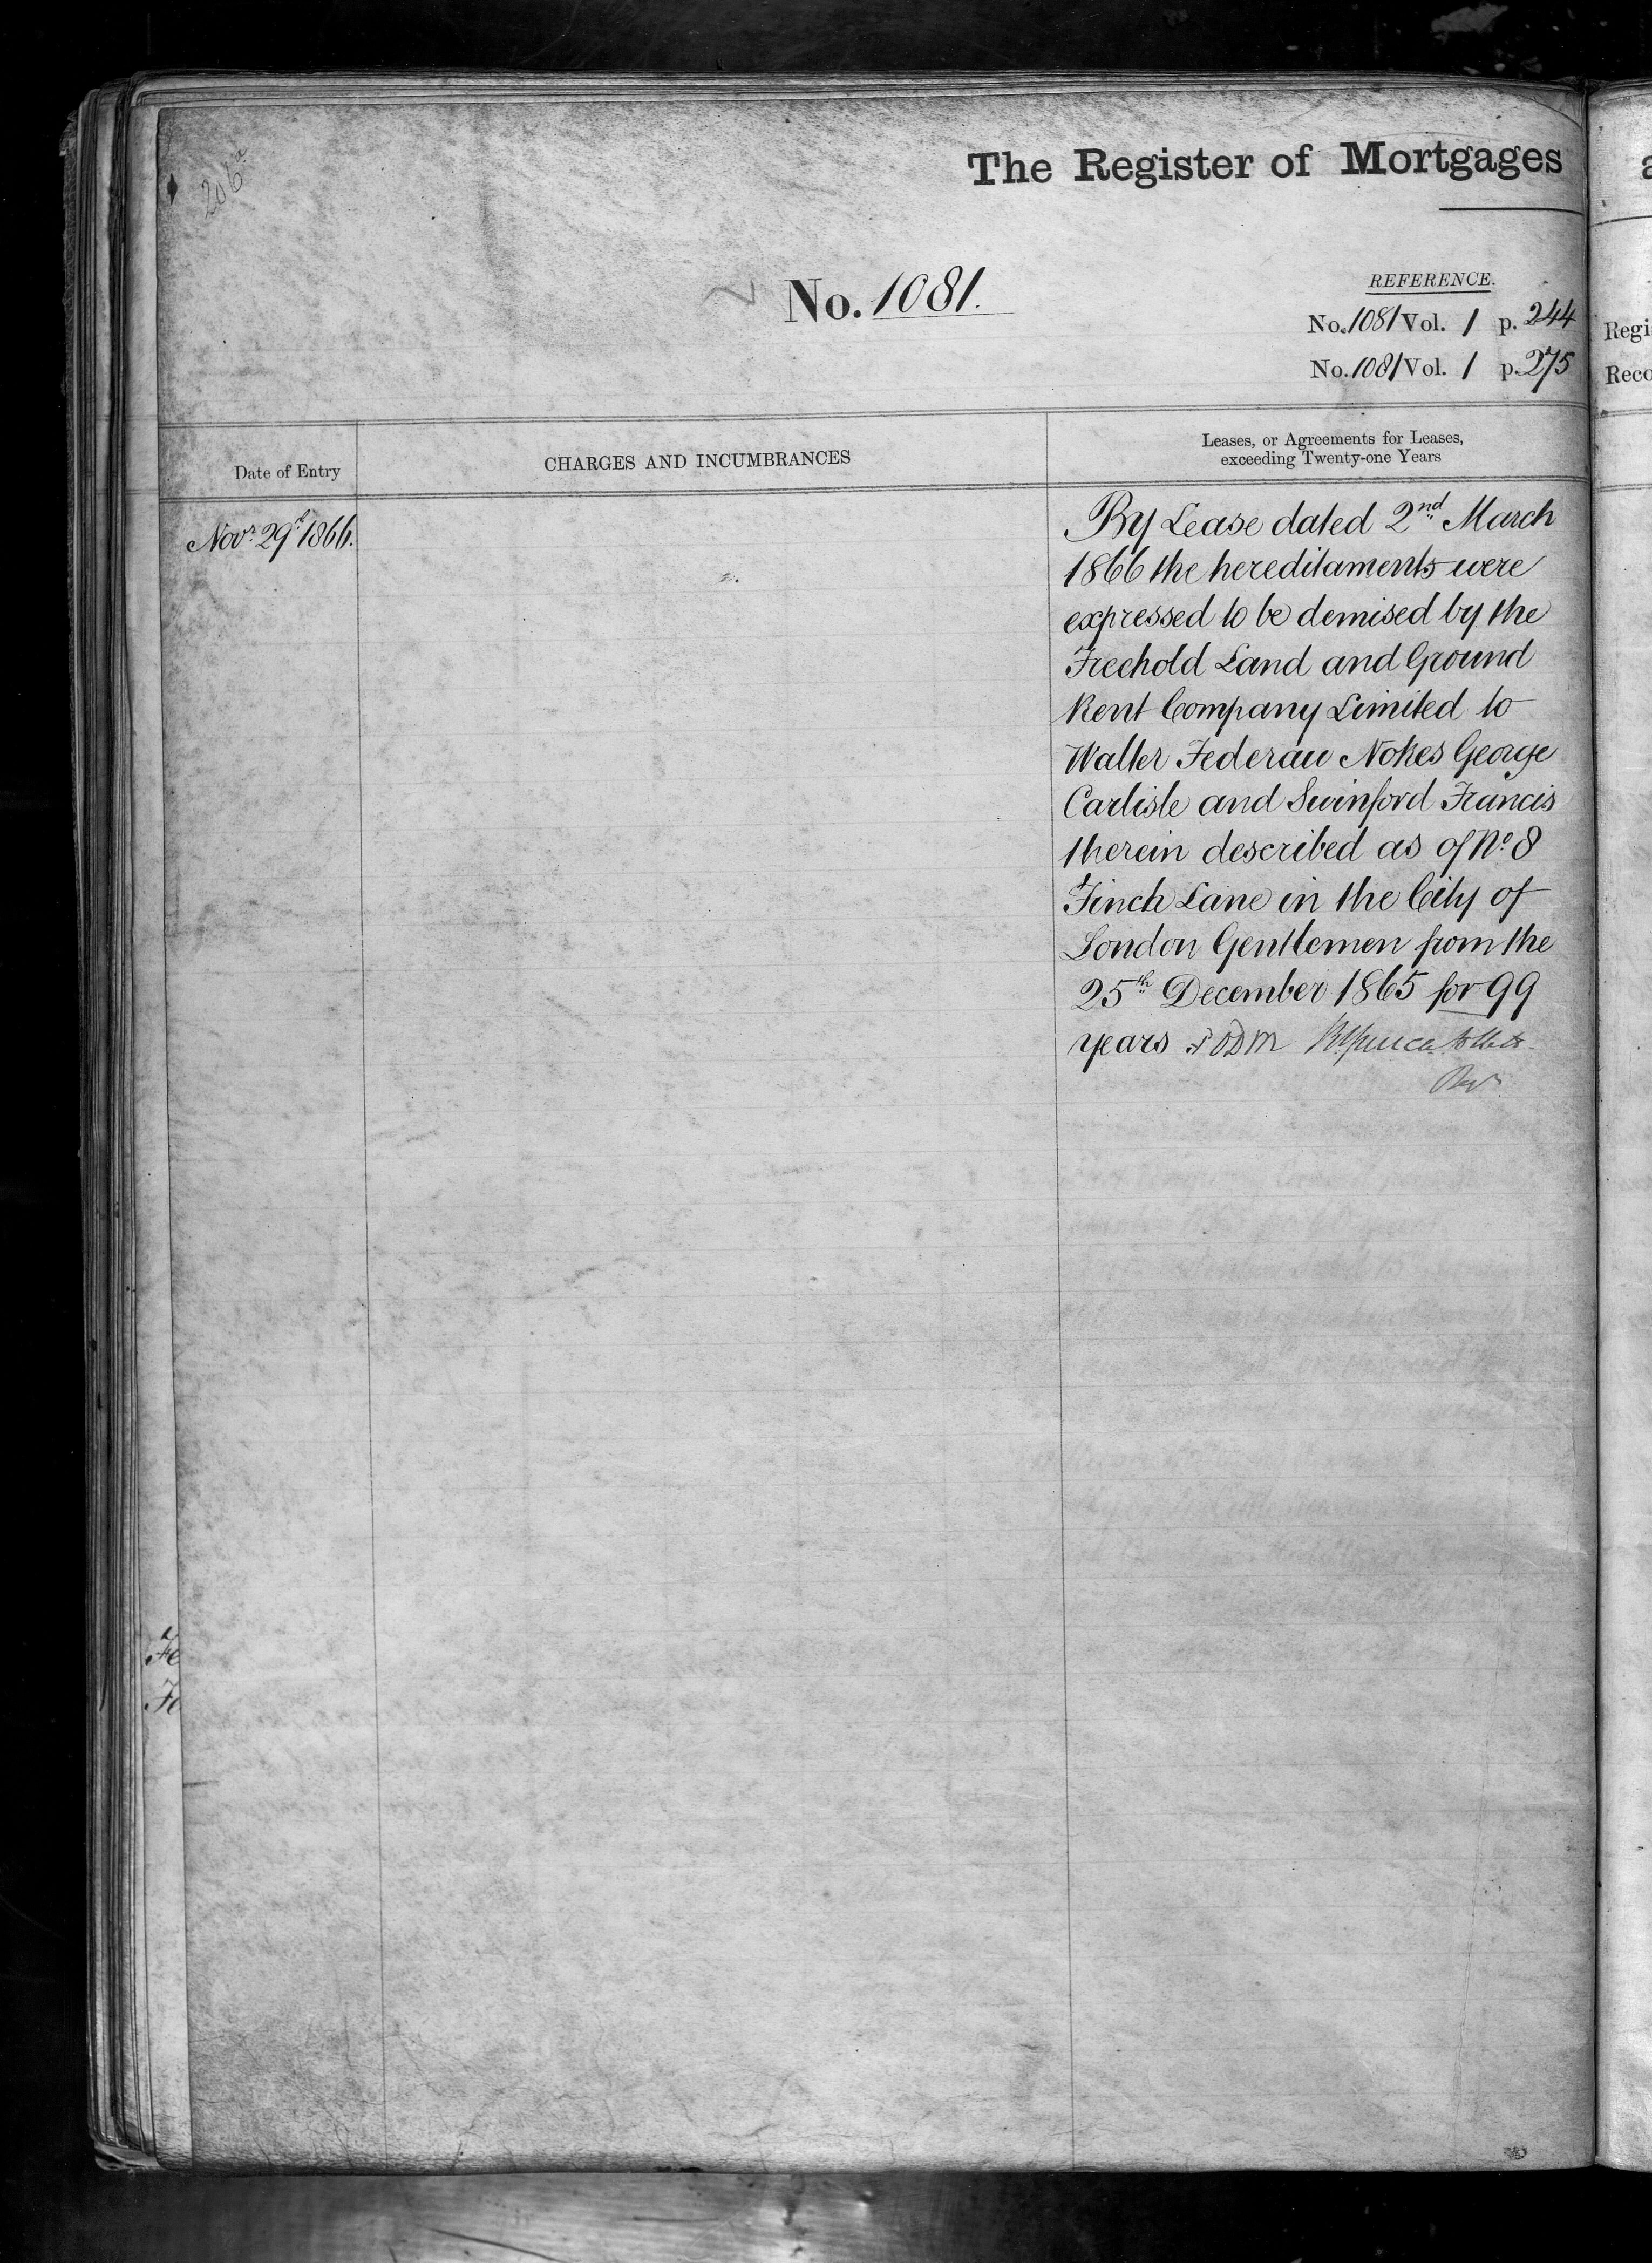 206a
The Register of Mortgages
No. 1081.
REFERENCE.
No. 1081 Vol. 1 p. 244
No. 1081 Vol. 1 p. 275
Regi
Reco
Date of Entry
CHARGES AND INCUMBRANCES
Leases, or Agreements for Leases,
exceeding Twenty-one Years
Novr. 29th 1866.
By Lease dated 2nd March
1866 the hereditaments were
expressed to be demised by the
Freehold Land and Ground
Rent Company Limited to
Walter Federau Nokes George
Carlisle and Swinford Francis
therein described as of No. 8
Finch Lane in the City of
London Gentlemen from the
25th December 1865 for 99
years
Fe
Fe